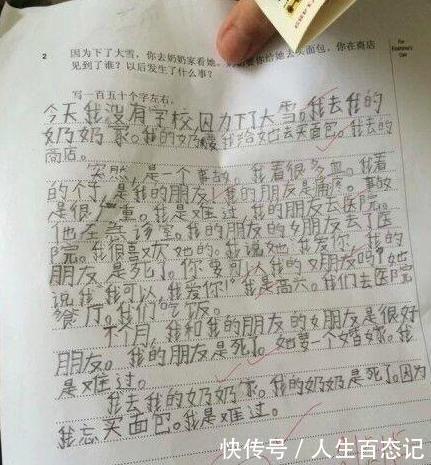 For
Examiner's
Use
2 因为下了大雪,你去奶奶家看她,奶奶要你给她去买面包,你在商店
见到了谁?以后发生了什么事?
写一百五十个字左右。
今天我没有学校,因为下了大雪。我去我的
奶奶家。我的奶奶要我给她去买面包。我去的
商店。
突然是一个事故。我看很多血。我看
的个子是我的朋友!我的朋友是痛。事故
是很严重。我是难过。我的朋友去医院。
他在急诊室。我的朋友的女朋友去了医
院。我很喜欢她的。我说她“我爱你,我的
朋友是死了。你要可以我的女朋友吗?”她
说我“我可以,我爱你!”我是高兴。我们去医院
餐厅。我们吃饭。
下个月,我和我的朋友的女朋友是很好
朋友。我的朋友是死了。她要一个婚礼。我
是难过。
我去我的奶奶家。我的奶奶是死了。因为
我忘买面包。我是难过。
快传号/人生百态记